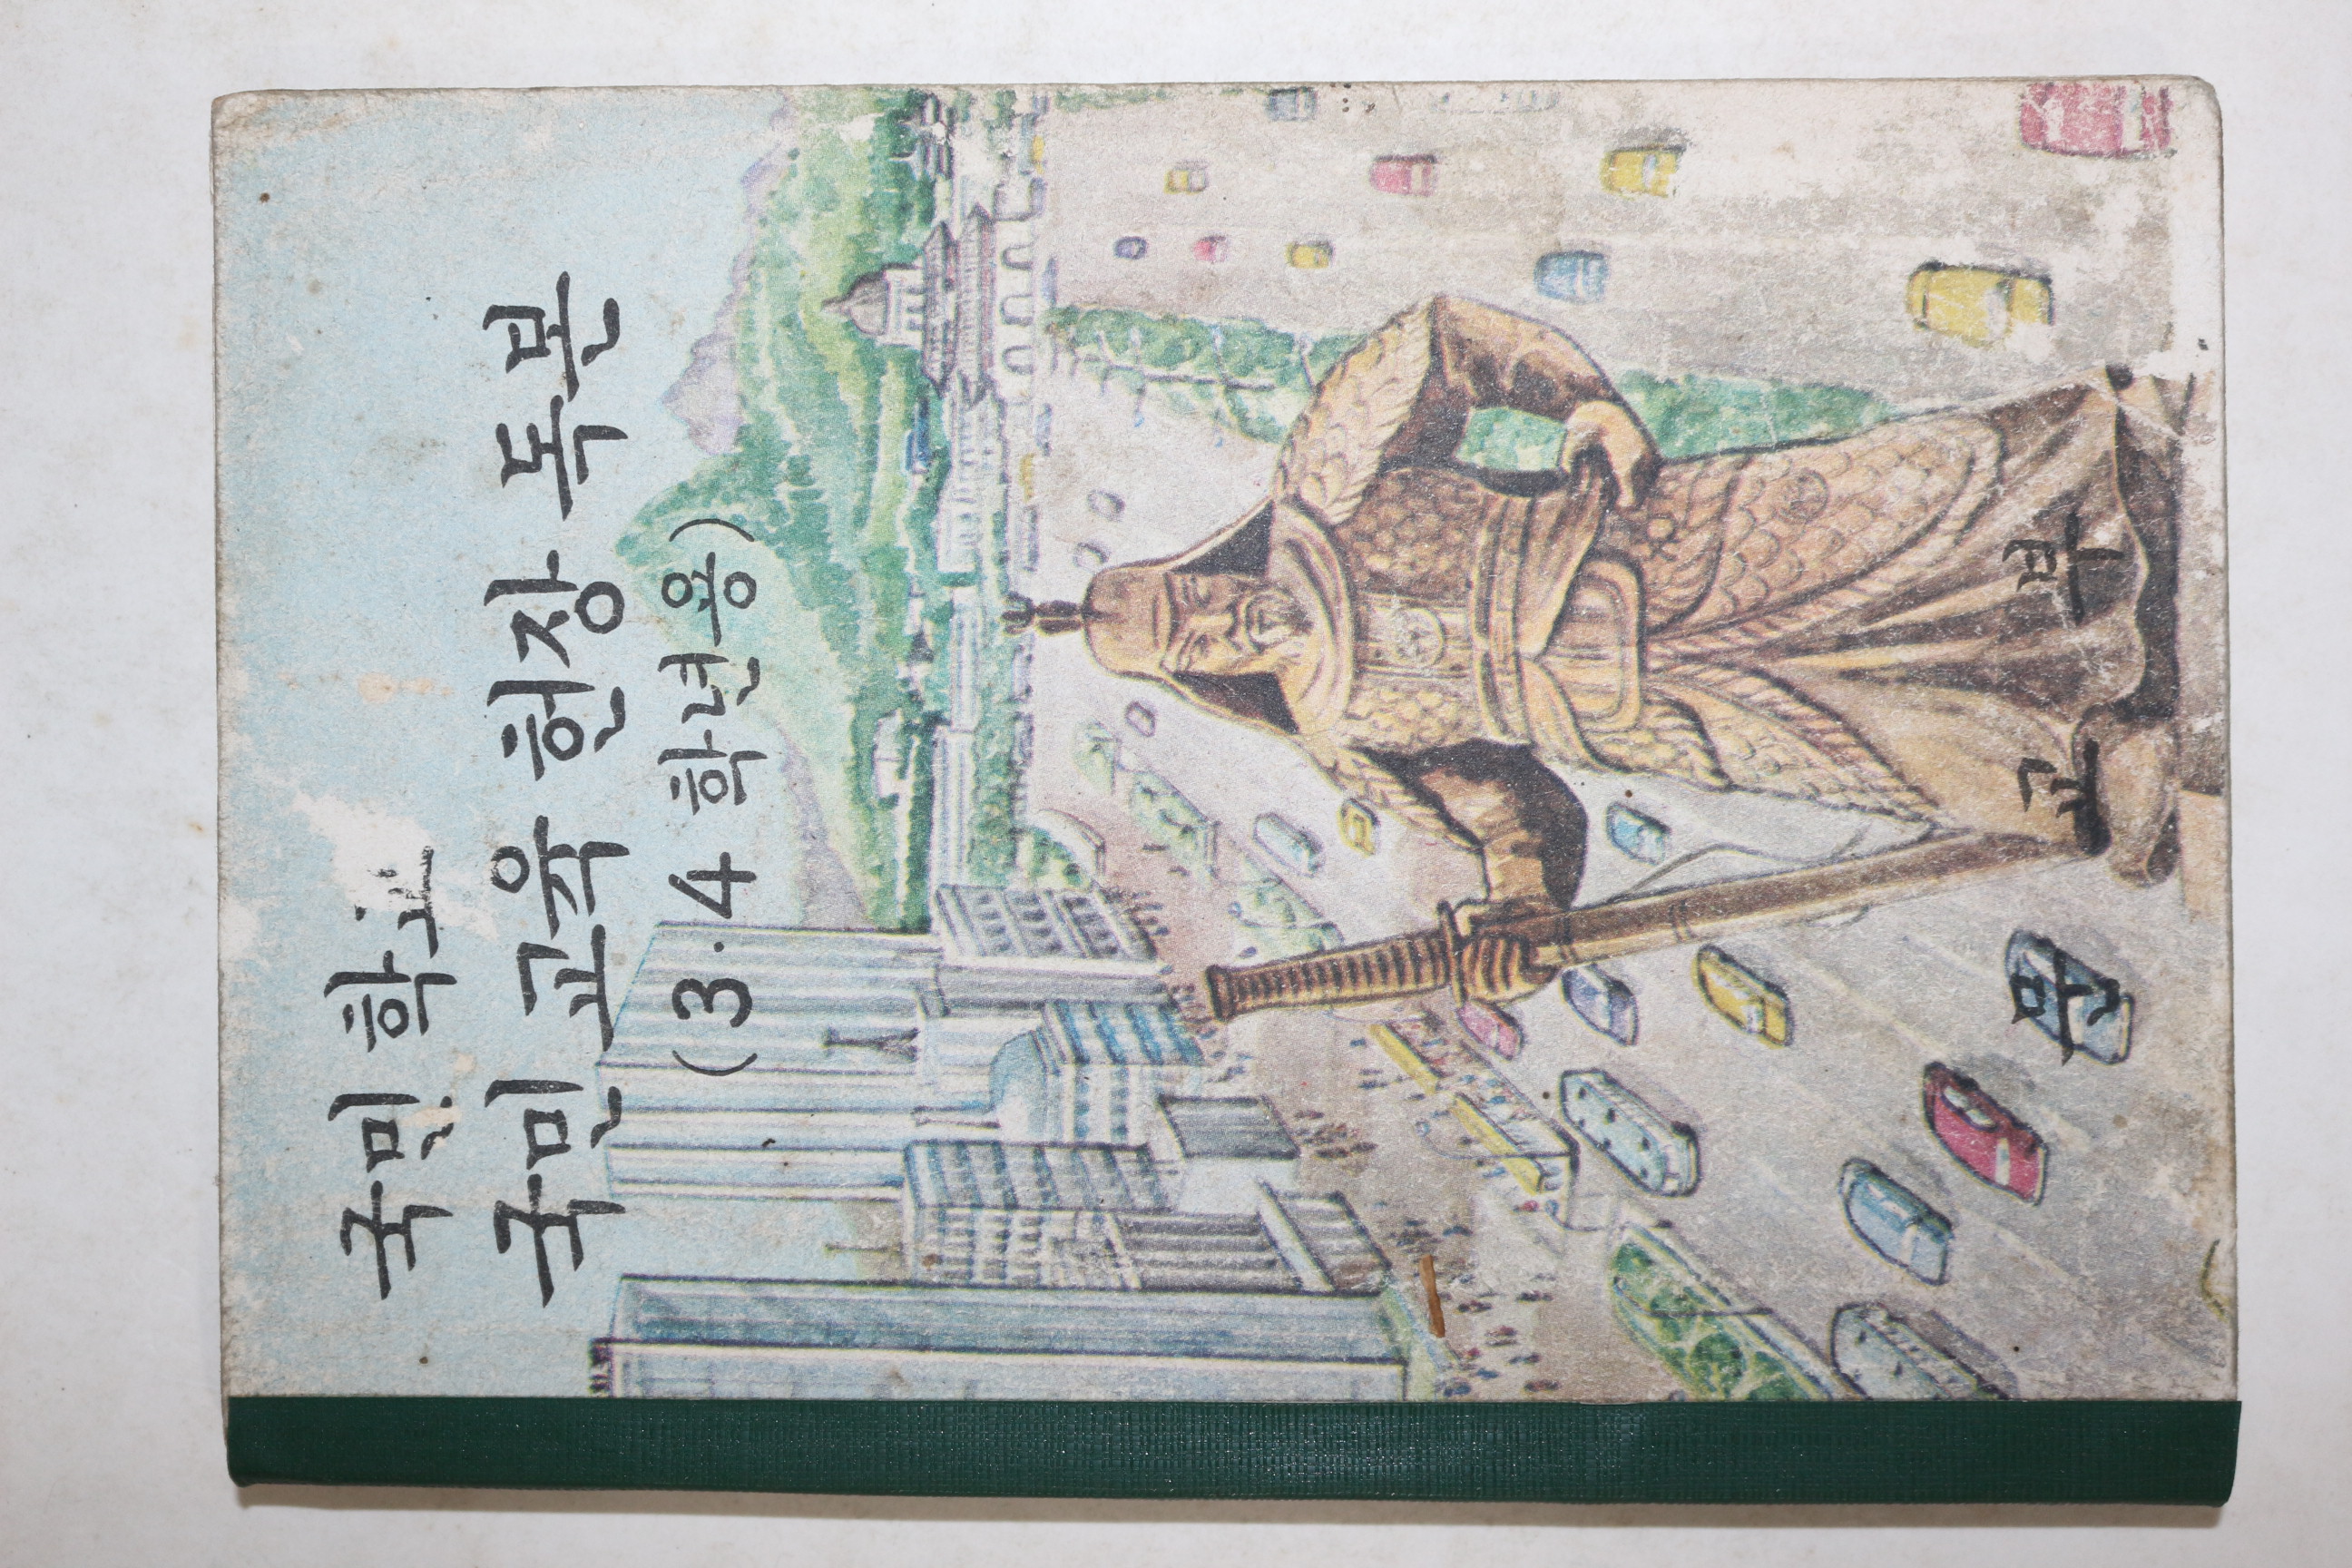 국민 학교
국민 교육 헌장 독본
(3·4 학년용)
문 교 부